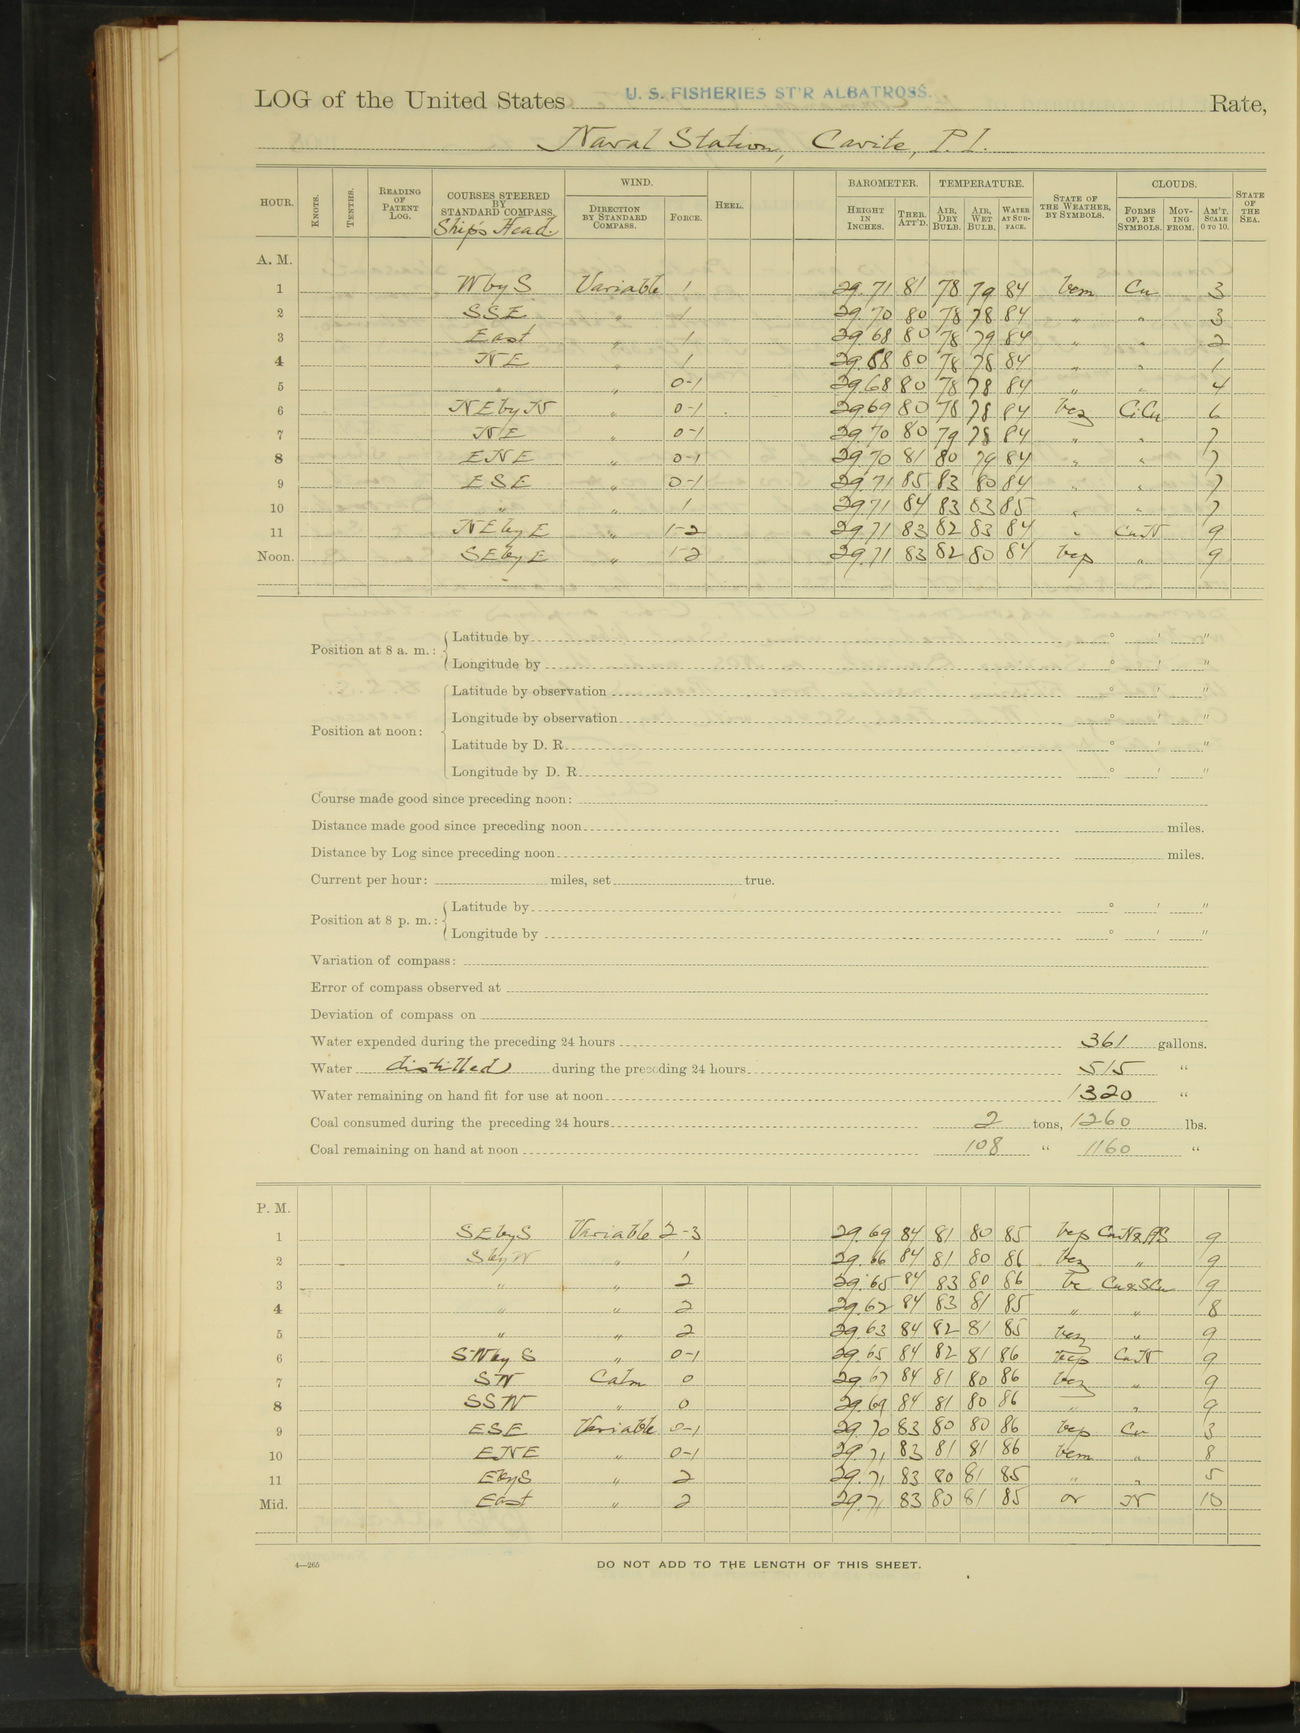 LOG of the United States U. S. FISHERIES ST'R ALBATROSS. Rate,
Naval Station, Cavite, P. I.
HOUR. KNOTS. TENTHS. READING OF PATENT LOG. COURSES STEERED BY STANDARD COMPASS. Ship's Head. WIND. DIRECTION BY STANDARD COMPASS. FORCE. HEEL. BAROMETER. HEIGHT IN INCHES. THER. ATT'D. TEMPERATURE. AIR, DRY BULB. AIR, WET BULB. WATER AT SURFACE. STATE OF THE WEATHER, BY SYMBOLS. CLOUDS. FORMS OF, BY SYMBOLS. MOVING FROM. AM'T. SCALE 0 TO 10. STATE OF THE SEA.
A. M.
1 W by S Variable 1 29.71 81 78 79 84 bcm Cu 3
2 SSE " 1 29.70 80 78 78 84 " " 3
3 East " 1 29.68 80 78 79 84 " " 2
4 NE " 1 29.68 80 78 78 84 " " 1
5 " " 0-1 29.68 80 78 78 84 " " 4
6 NE by N " 0-1 29.69 80 78 78 84 bcz Ci.Cu 6
7 NE " 0-1 29.70 80 79 78 84 " " 7
8 ENE " 0-1 29.70 81 80 79 84 " " 7
9 ESE " 0-1 29.71 85 83 80 84 " " 7
10 " " 1 29.71 84 83 83 85 " " 7
11 NE by E " 1-2 29.71 83 82 83 84 " Cu N 9
Noon. SE by E " 1-2 29.71 83 82 80 84 bcp " 9
Position at 8 a. m.: Latitude by ° ' "
Longitude by ° ' "
Position at noon: Latitude by observation ° ' "
Longitude by observation ° ' "
Latitude by D. R. ° ' "
Longitude by D. R. ° ' "
Course made good since preceding noon:
Distance made good since preceding noon miles.
Distance by Log since preceding noon miles.
Current per hour: miles, set true.
Position at 8 p. m.: Latitude by ° ' "
Longitude by ° ' "
Variation of compass:
Error of compass observed at
Deviation of compass on
Water expended during the preceding 24 hours 361 gallons.
Water distilled during the preceding 24 hours 515 "
Water remaining on hand fit for use at noon 1320 "
Coal consumed during the preceding 24 hours 2 tons, 1260 lbs.
Coal remaining on hand at noon 108 " 1160 "
P. M.
1 SE by S Variable 2-3 29.69 84 81 80 85 bcp 9
2 S by W " 1 29.66 84 81 80 86 bcz " 9
3 " " 2 29.65 84 83 80 86 bc Cu & SCu 9
4 " " 2 29.62 84 83 81 85 " " 8
5 " " 2 29.63 84 82 81 85 bcz " 9
6 SW by S " 0-1 29.65 84 82 81 86 bcp Cu N 9
7 SW Calm 0 29.67 84 81 80 86 bcz " 9
8 SSW " 0 29.69 84 81 80 86 " " 9
9 ESE Variable 0-1 29.70 83 80 80 86 bcp Cu 3
10 ENE " 0-1 29.71 83 81 81 86 bcm " 8
11 E by S " 2 29.71 83 80 81 85 " " 5
Mid. East " 2 29.71 83 80 81 85 or N 10
4—265 DO NOT ADD TO THE LENGTH OF THIS SHEET.